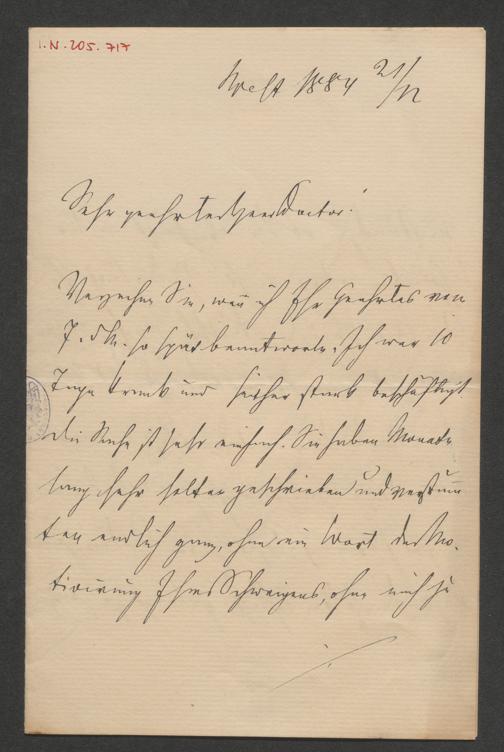 I.N. 205.717
Pest 1884 21/12
Sehr geehrter Herr Doctor!
Verzeihen Sie, wenn ich Ihr Geehrtes von
7. d M. so spät beantworte. Ich war 10
Tage krank und seither stark beschäftigt
Die Sache ist sehr einfach. Sie haben Monate
lang sehr selten geschrieben und verstum̄
ten endlich ganz, ohne ein Wort der Mo-
tivirung Ihres Schweigens, ohne mich zu
./.